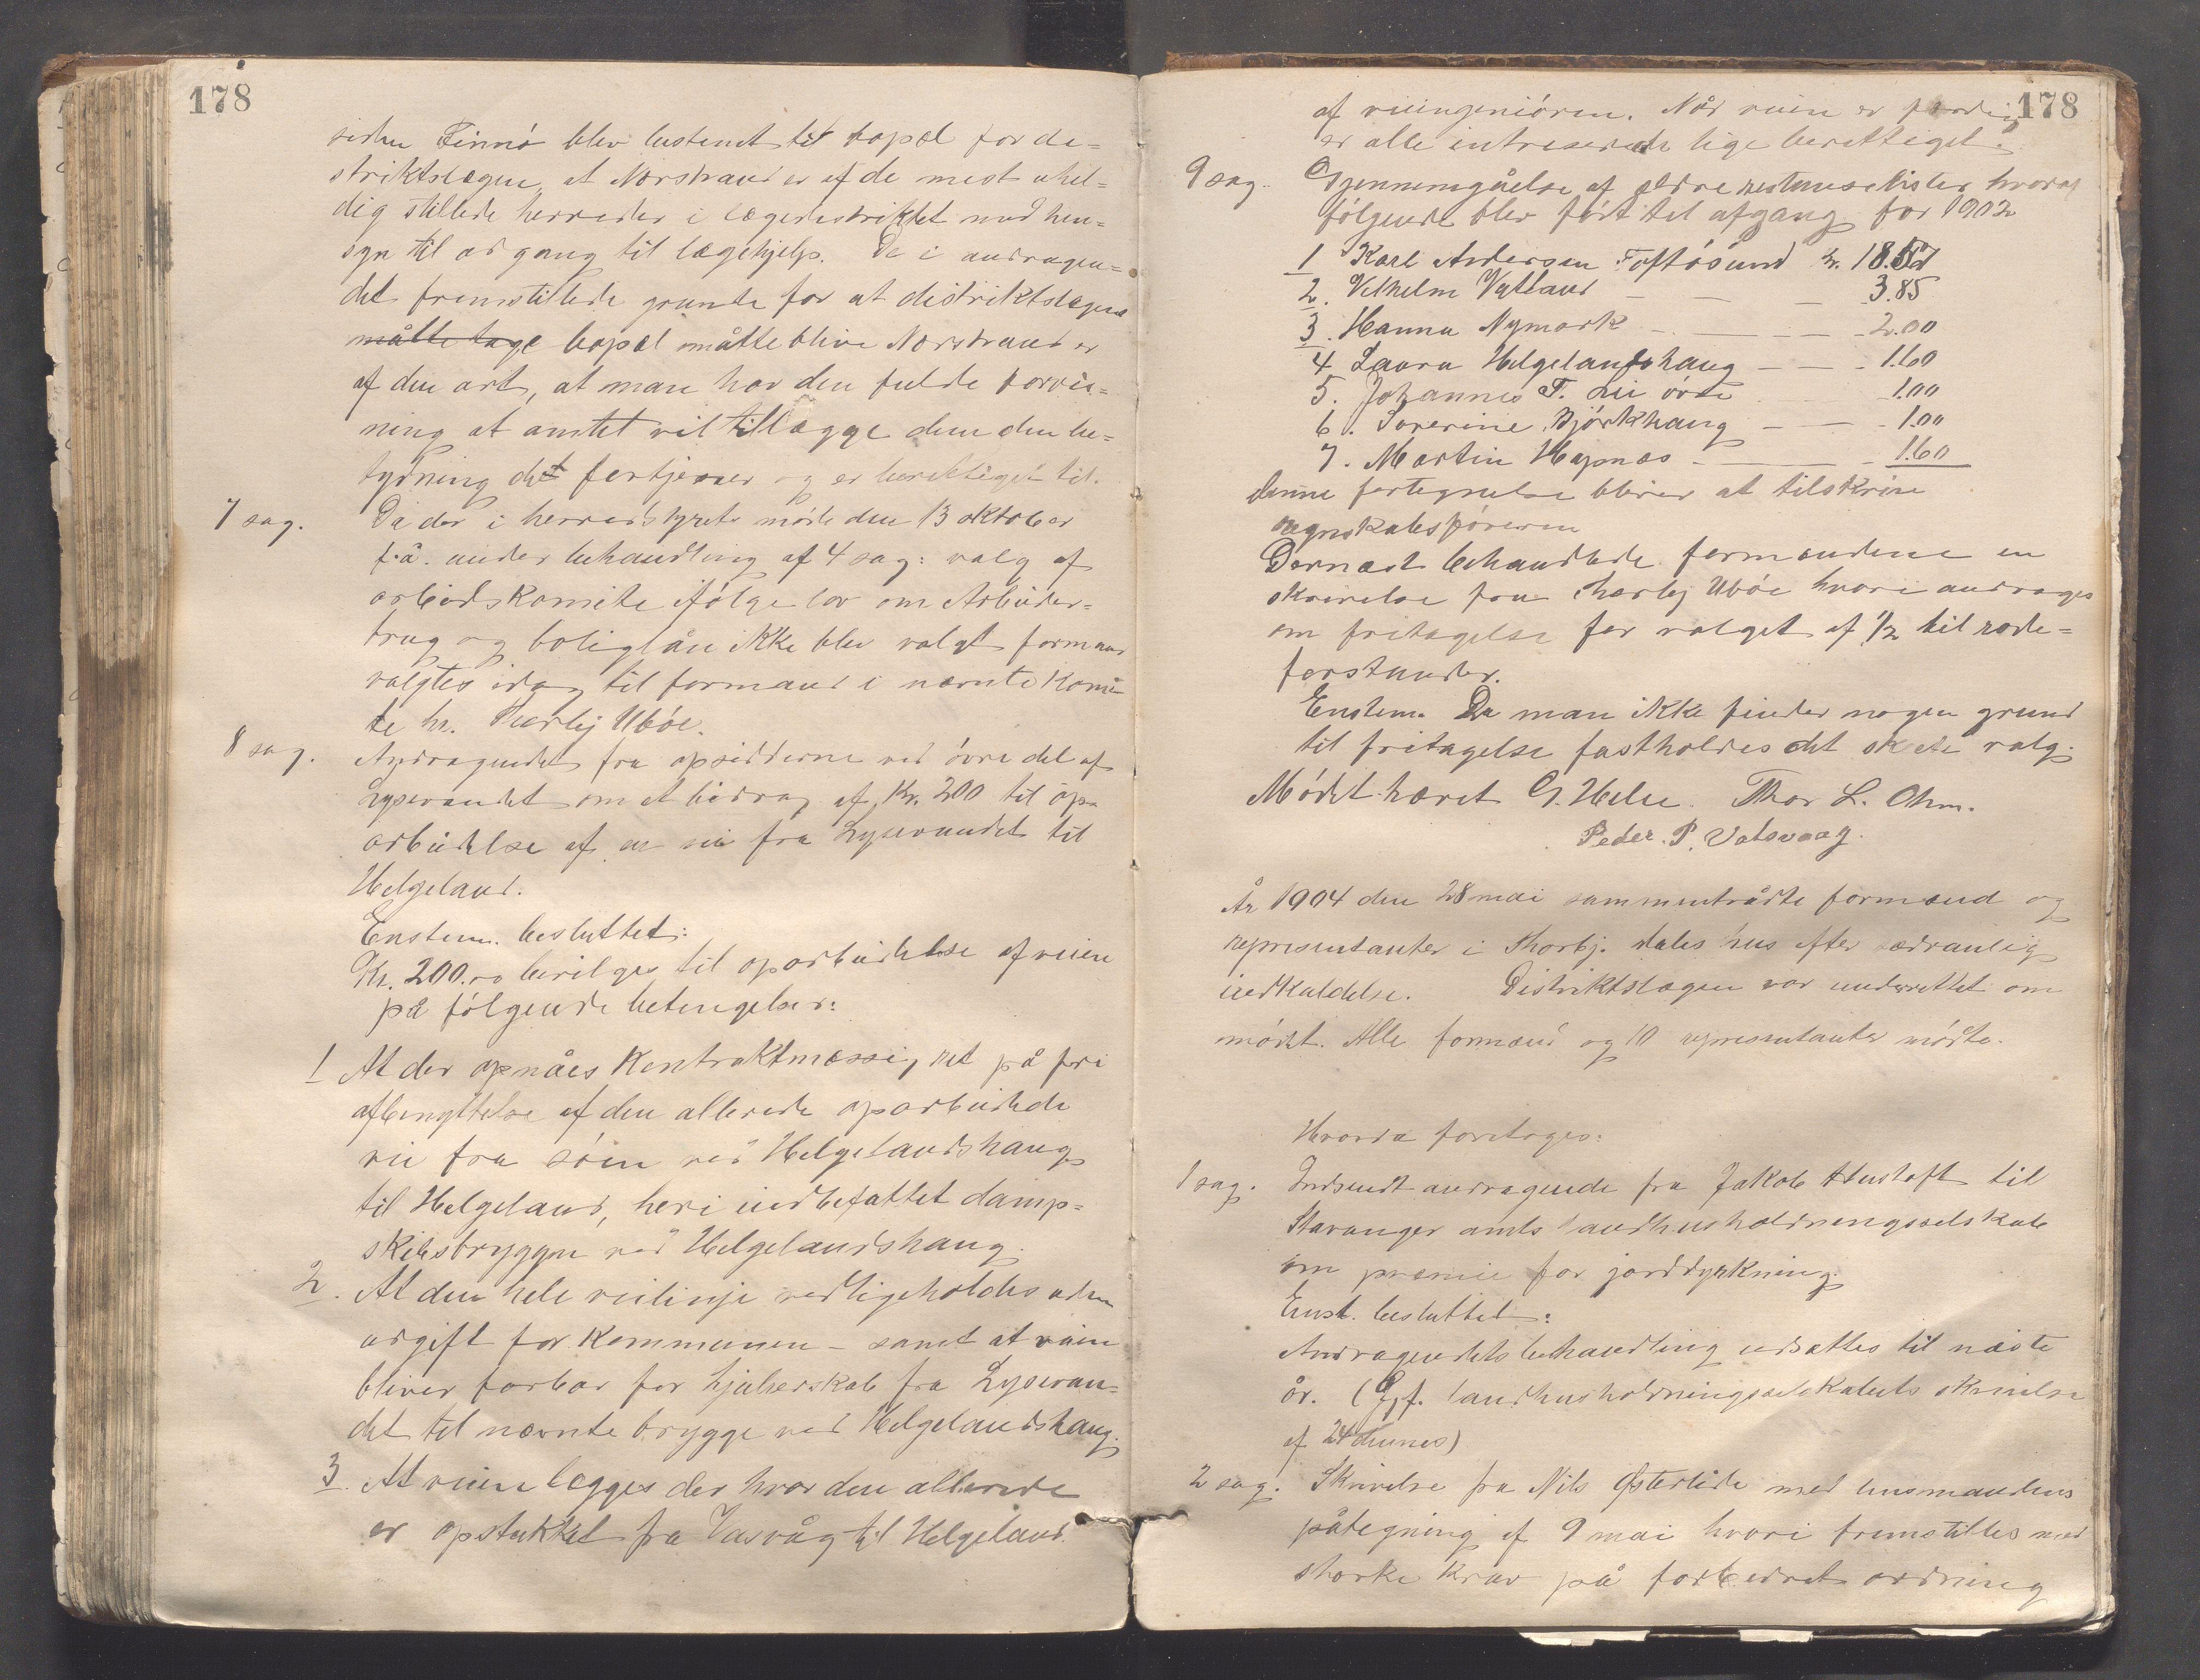 178
siden Finnö blev bestemt til bopæl for di=
striktslægen, at Nærstrand er af de mest uhel=
dig stillede herreder i lægedistriktet med hen=
syn til adgang til lægehjelp. De i andragen=
det fremstillede grunde for at distriktslægens
måtte tage bopæl måtte blive Nærstrand er
af den art, at man har den fulde forvis=
ning at amtet vil tillægge dem den be=
tydning det fortjener og er berettiget til.
7 sag. Da der i herredstyrets möde den 13 oktober
f.å. under behandling af 4 sag: valg af
arbeidskomite ifölge lov om Arbeider=
brug og boliglån ikke blev valgt formand
valgtes idag til formand i nævnte komi=
te hr. Thorbj Uböe.
8 sag. Andragendet fra opsidderne ved övre del af
Lysevandet om et bidrag af Kr. 200 til op=
arbeidelse af en vei fra Lysevandet til
Helgeland.
Enstem. besluttet:
Kr. 200.00 bevilges til oparbeidelse af veien
på fölgende betingelser:
1 At der opnåes kontraktmæssig ret på fri
afbenyttelse af den allerede oparbeidede
vei fra söen ved Helgelandshaug
til Helgeland, heri indbefattet damp=
skibsbryggen ved Helgelandshaug.
2. At den hele veilinje vedligeholdes uden
udgift for kommunen – samt at veien
bliver farbar for hjulredskab fra Lysevan=
det til nævnte brygge ved Helgelandshaug.
3 At veien lægges der hvor den allerede
er opstukket fra Vasvåg til Helgeland
178
af veiingeniören. Når veien er færdig
er alle intreserede lige berettiget.
9 sag. Gjennemgåelse af ældre restanselister hvoraf
fölgende blev fört til afgang for 1902
1 Karl Andersen Toftösund kr. 18.57
2. Vilhelm Vatland – – – 3.85
3. Hanna Nymark – – – 2.00
4 Laura Helgelandshaug – – – 1.60
5. Johannes T. övre 1.00
6. Sverine Björkhaug – – – 1.00
7. Martin Høynæs – – – 1.60
denne fortegnelse bliver at tilskrive
regnskabsföreren
Dernæst behandlede formændene en
skrivelse fra Thorbj Uböe hvori andrages
om fritagelse for valget af 1/2 til rode=
forstander.
Enstem. Da man ikke finder nogen grund
til fritagelse fastholdes det skete valg.
Mödet hævet G. Helle. Thor L. Ohm.
Peder. P. Vatsvaag.
År 1904 den 28 mai sammentrådte formænd og
representanter i Thorbj. dales hus efter sædvanlig
indkaldelse. Distriktslægen var underrettet om
mödet. Alle formænd og 10 representanter mödte.
Hvorda foretages:
1 sag. Indsendt andragende fra Jakob Hustoft til
Stavanger amts landhusholdningsselskab
om præmie for jorddyrkning.
Enst. besluttet:
Andragendets behandling udsættes til næste
år. (Cfr. landhusholdningsselskabets skrivelse
af 24 dennes)
2 sag. Skrivelse fra Nils Østerlide med lensmandens
påtegning af 9 mai hvori fremstilles med
stærke krav på forbedret ordning